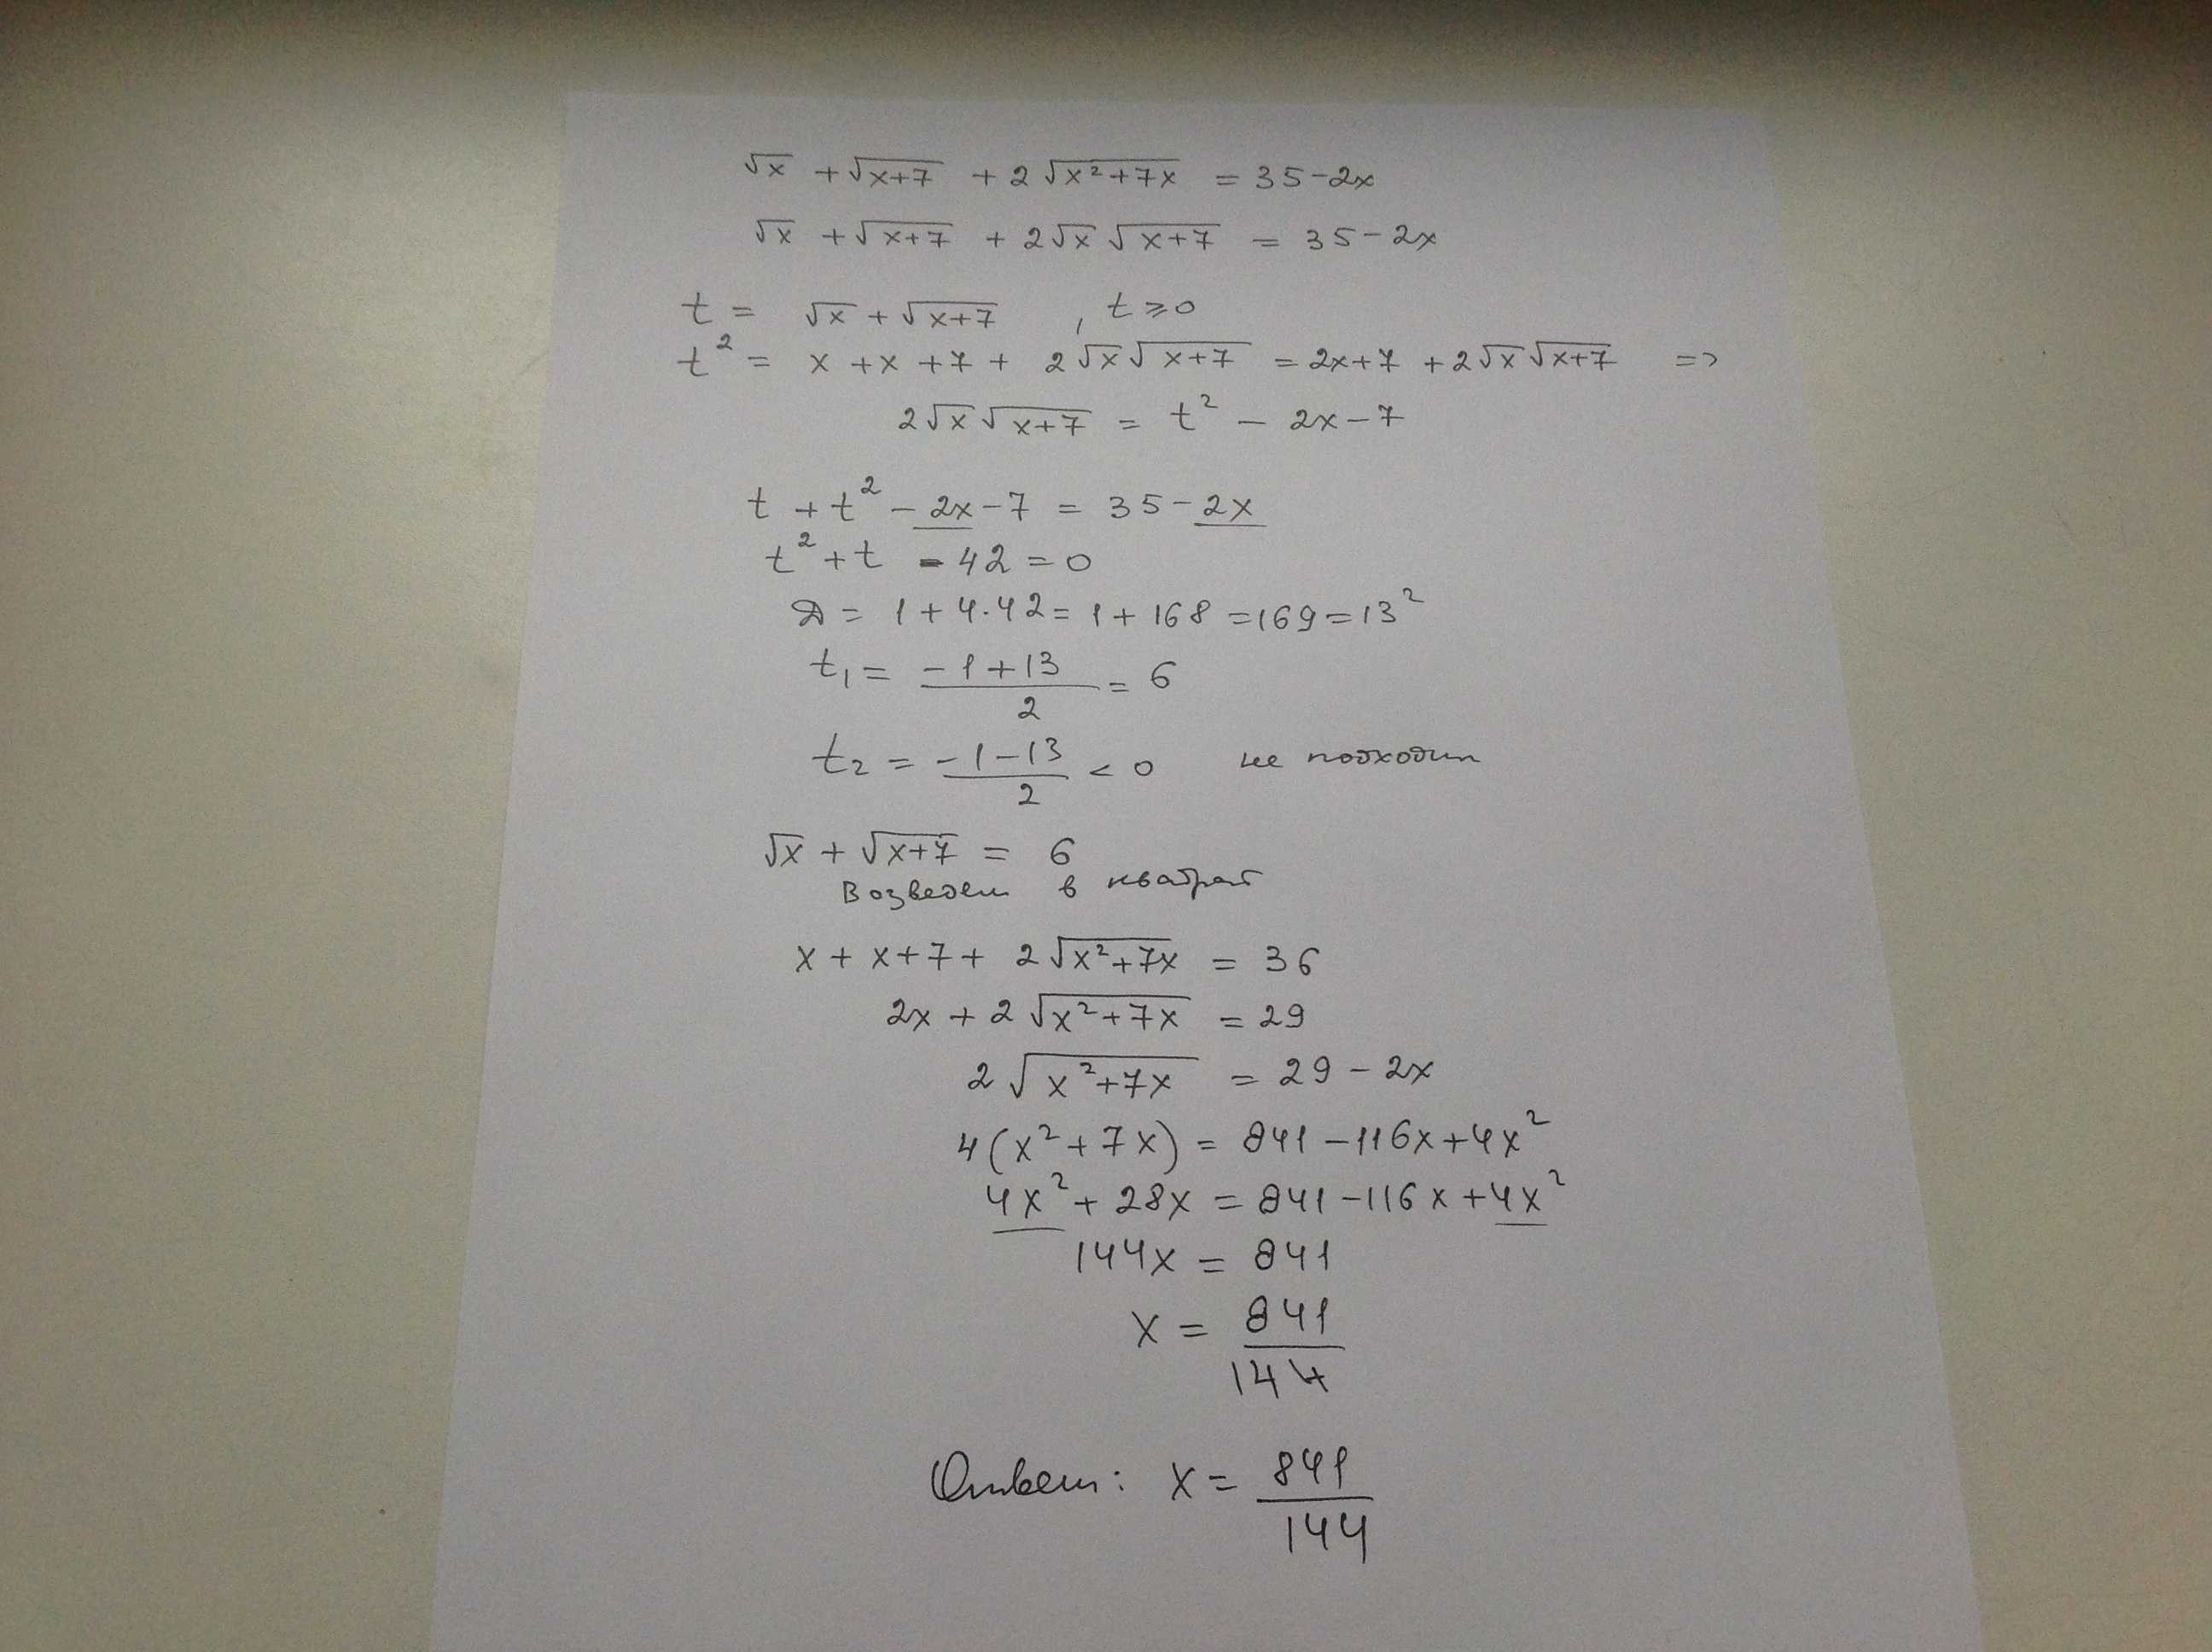 √x + √(x+7) + 2√(x²+7x) = 35-2x
√x + √(x+7) + 2√x √(x+7) = 35-2x
t = √x + √(x+7) , t ⩾ 0
t² = x + x + 7 + 2√x √(x+7) = 2x+7 + 2√x √(x+7) =>
2√x √(x+7) = t² - 2x - 7
t + t² - 2x - 7 = 35 - 2x
t² + t - 42 = 0
D = 1 + 4·42 = 1 + 168 = 169 = 13²
t₁ = (-1+13)/2 = 6
t₂ = (-1-13)/2 < 0 не подходит
√x + √(x+7) = 6
Возведем в квадрат
x + x + 7 + 2√(x²+7x) = 36
2x + 2√(x²+7x) = 29
2√(x²+7x) = 29 - 2x
4(x²+7x) = 841 - 116x + 4x²
4x² + 28x = 841 - 116x + 4x²
144x = 841
x = 841/144
Ответ: x = 841/144